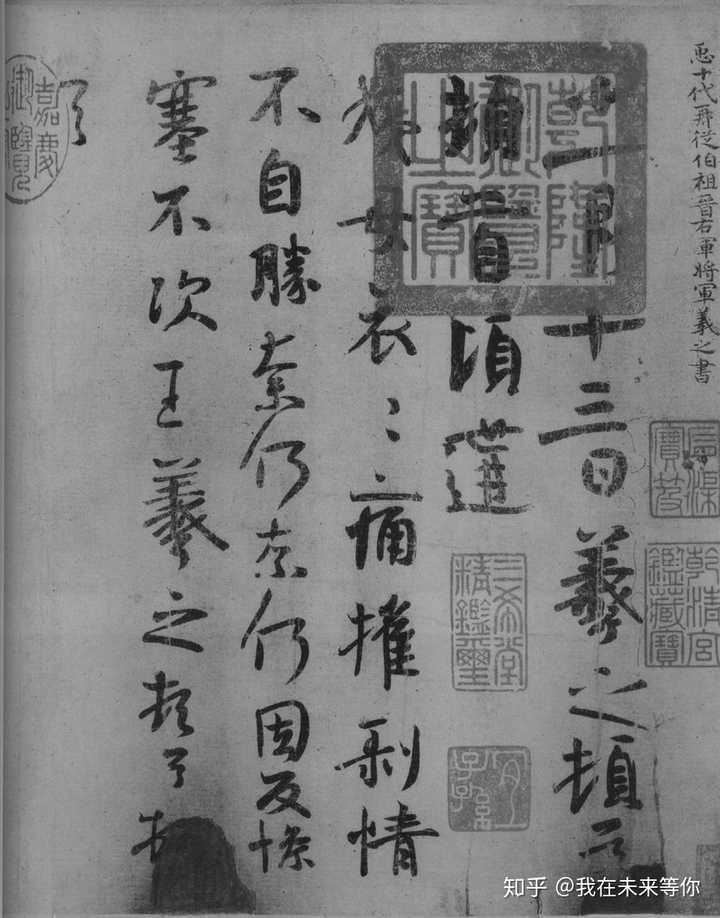 𢘑十代再從伯祖晉右軍將軍羲之書
十一月十三日羲之頓首
頓首頃遘
姨母哀〻痛摧剝情
不自勝奈何奈何因反慘
塞不次王羲之頓首頓
首
乾隆御覽之寶
石渠寶笈
乾清宮鑑藏寶
三希堂精鑑璽
宜子孫
嘉慶御覽
知乎 @我在未来等你